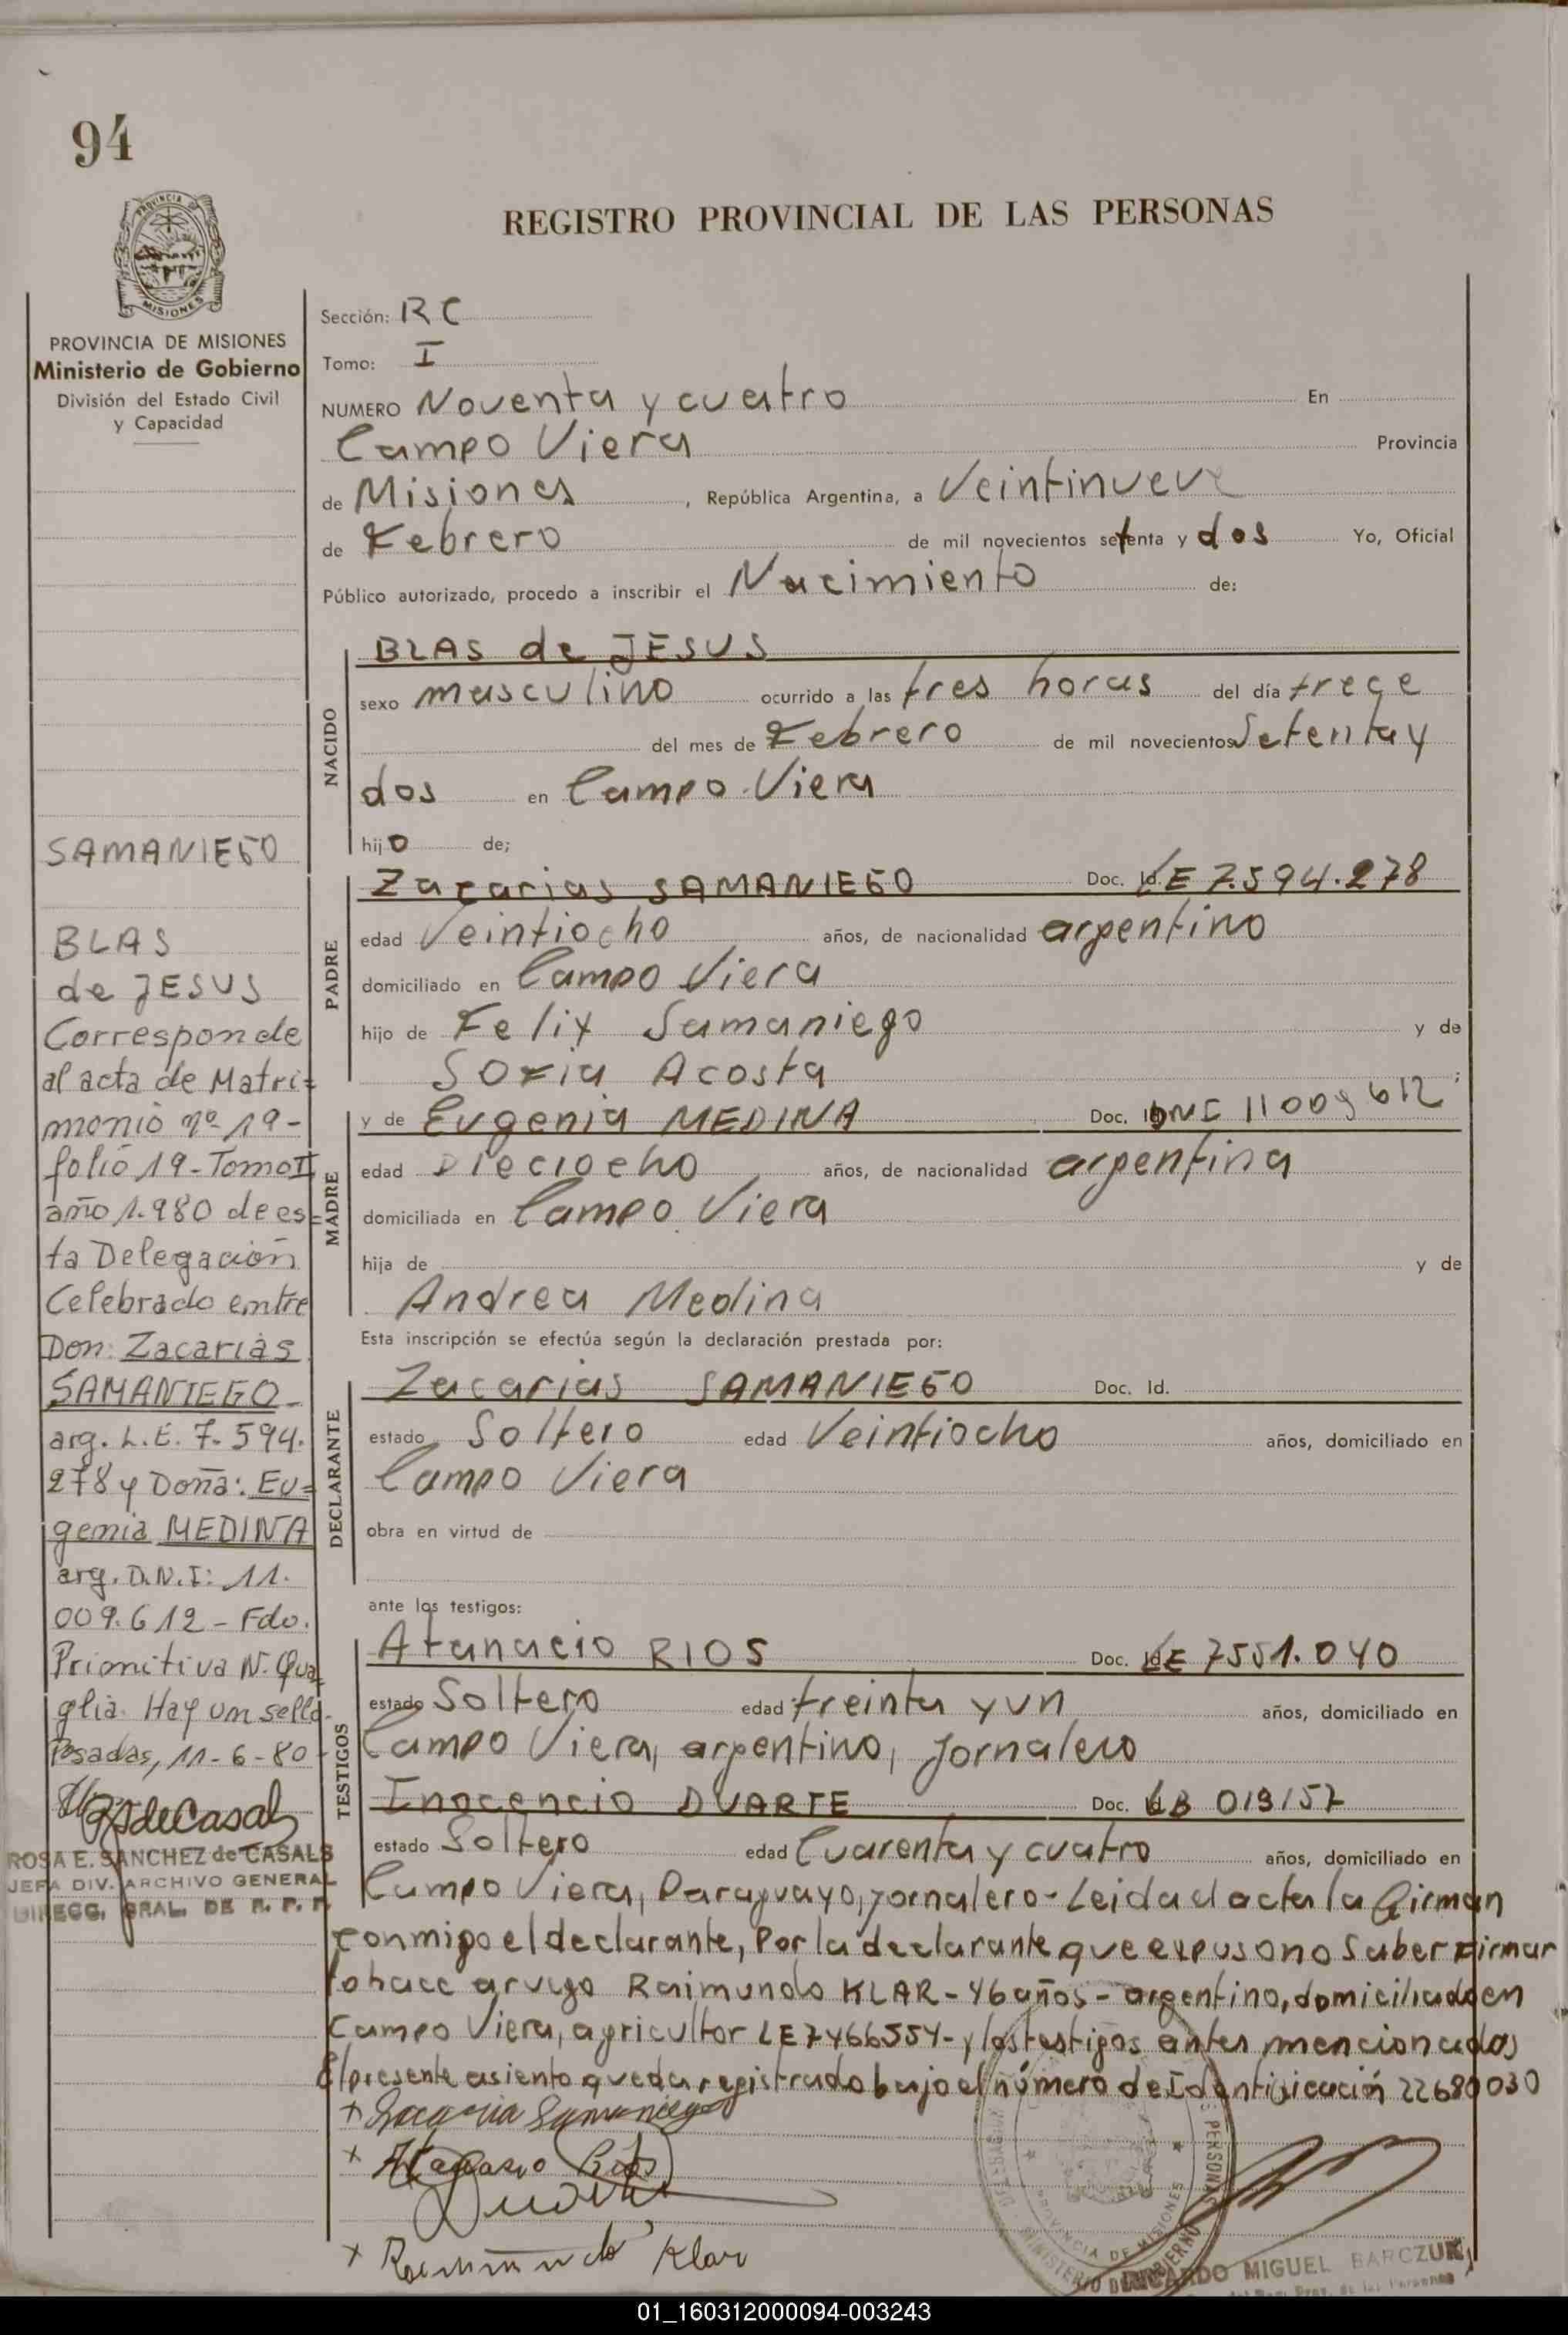 94
PROVINCIA
MISIONES
PROVINCIA DE MISIONES
Ministerio de Gobierno
División del Estado Civil
y Capacidad
SAMANIEGO
BLAS
de JESUS
Corresponde
al acta de Matri=
monio nº 19-
folio 19-Tomo I
año 1.980 de es=
ta Delegación
Celebrado entre
Don: Zacarias
SAMANIEGO-
arg. L.E. 7.594.
278 y Doña: Eu=
genia MEDINA
arg. D.N.I: 11.
009.612 - Fdo.
Primitiva N. Qua=
glia. Hay un sello-
Posadas, 11-6-80-
RSdeCasals
ROSA E. SANCHEZ de CASALS
JEFA DIV. ARCHIVO GENERAL
DIRECC. GRAL. DE R. P. P.
REGISTRO PROVINCIAL DE LAS PERSONAS
Sección: RC
Tomo: I
NUMERO Noventa y cuatro En
Campo Viera Provincia
de Misiones, República Argentina, a Veintinueve
de Febrero de mil novecientos setenta y dos Yo, Oficial
Público autorizado, procedo a inscribir el Nacimiento de:
NACIDO
BLAS de JESUS
sexo masculino ocurrido a las tres horas del día trece
del mes de Febrero de mil novecientos Setenta y
dos en Campo Viera
hijo de;
PADRE
Zacarias SAMANIEGO Doc. Id. LE 7.594.278
edad Veintiocho años, de nacionalidad argentino
domiciliado en Campo Viera
hijo de Felix Samaniego y de
Sofia Acosta;
MADRE
y de Eugenia MEDINA Doc. Id DNI 11009612
edad Dieciocho años, de nacionalidad argentina
domiciliada en Campo Viera
hija de y de
Andrea Medina
Esta inscripción se efectúa según la declaración prestada por:
DECLARANTE
Zacarias SAMANIEGO Doc. Id.
estado Soltero edad Veintiocho años, domiciliado en
Campo Viera
obra en virtud de
ante los testigos:
TESTIGOS
Atanacio RIOS Doc. Id LE 7551.040
estado Soltero edad treinta y un años, domiciliado en
Campo Viera, argentino, jornalero
Inocencio DUARTE Doc. Id 019157
estado Soltero edad Cuarenta y cuatro años, domiciliado en
Campo Viera, Paraguayo, jornalero-Leida el acta la Firman
conmigo el declarante, Por la declarante que expuso no Saber firmar
lo hace a ruego Raimundo KLAR-46 años-argentino, domiciliado en
Campo Viera, agricultor LE7466554-y los testigos antes mencionados
El presente asiento queda registrado bajo el número de Identificación 22680030
+ Zacaria Samaniego
+ Atanacio Rios
Duarte
+ Raimundo Klar
PROVINCIA DE MISIONES
MINISTERIO DE GOBIERNO
PERSONAS
RICARDO MIGUEL BARCZUK